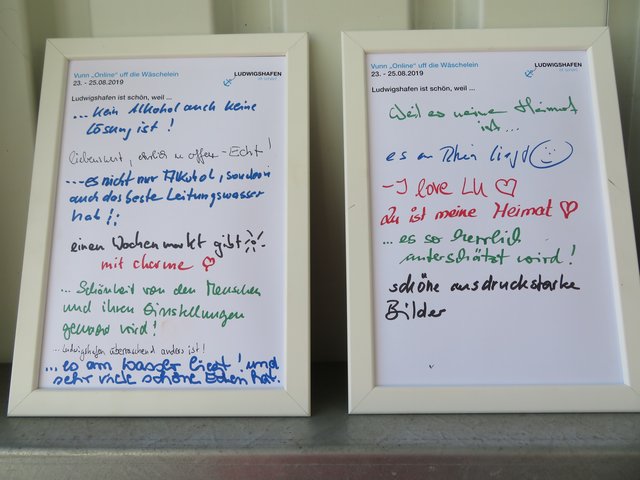 Vunn „Online" uff die Wäschelein
23. - 25.08.2019
LUDWIGSHAFEN
Ludwigshafen ist schön, weil ...
...kein Alkohol auch keine
Lösung ist!
liebenswert, ehrlich u offen - Echt!
...es nicht nur Alkohol, sondern
auch das beste Leitungswasser
hat!
einen Wochenmarkt gibt
mit charme
... Schönheit von den Menschen
und ihren Einstellungen
gemacht wird!
...Ludwigshafen überraschend anders ist!
...es am Wasser liegt! und
sehr viele schöne Ecken hat.
Vunn „Online" uff die Wäschelein
23. - 25.08.2019
LUDWIGSHAFEN
Ludwigshafen ist schön, weil ...
Weil es meine Heimat
ist...
es am Rhein liegt
- I love LU
Lu ist meine Heimat
... es so herrlich
unterschätzt wird!
schöne ausdrucksstarke
Bilder